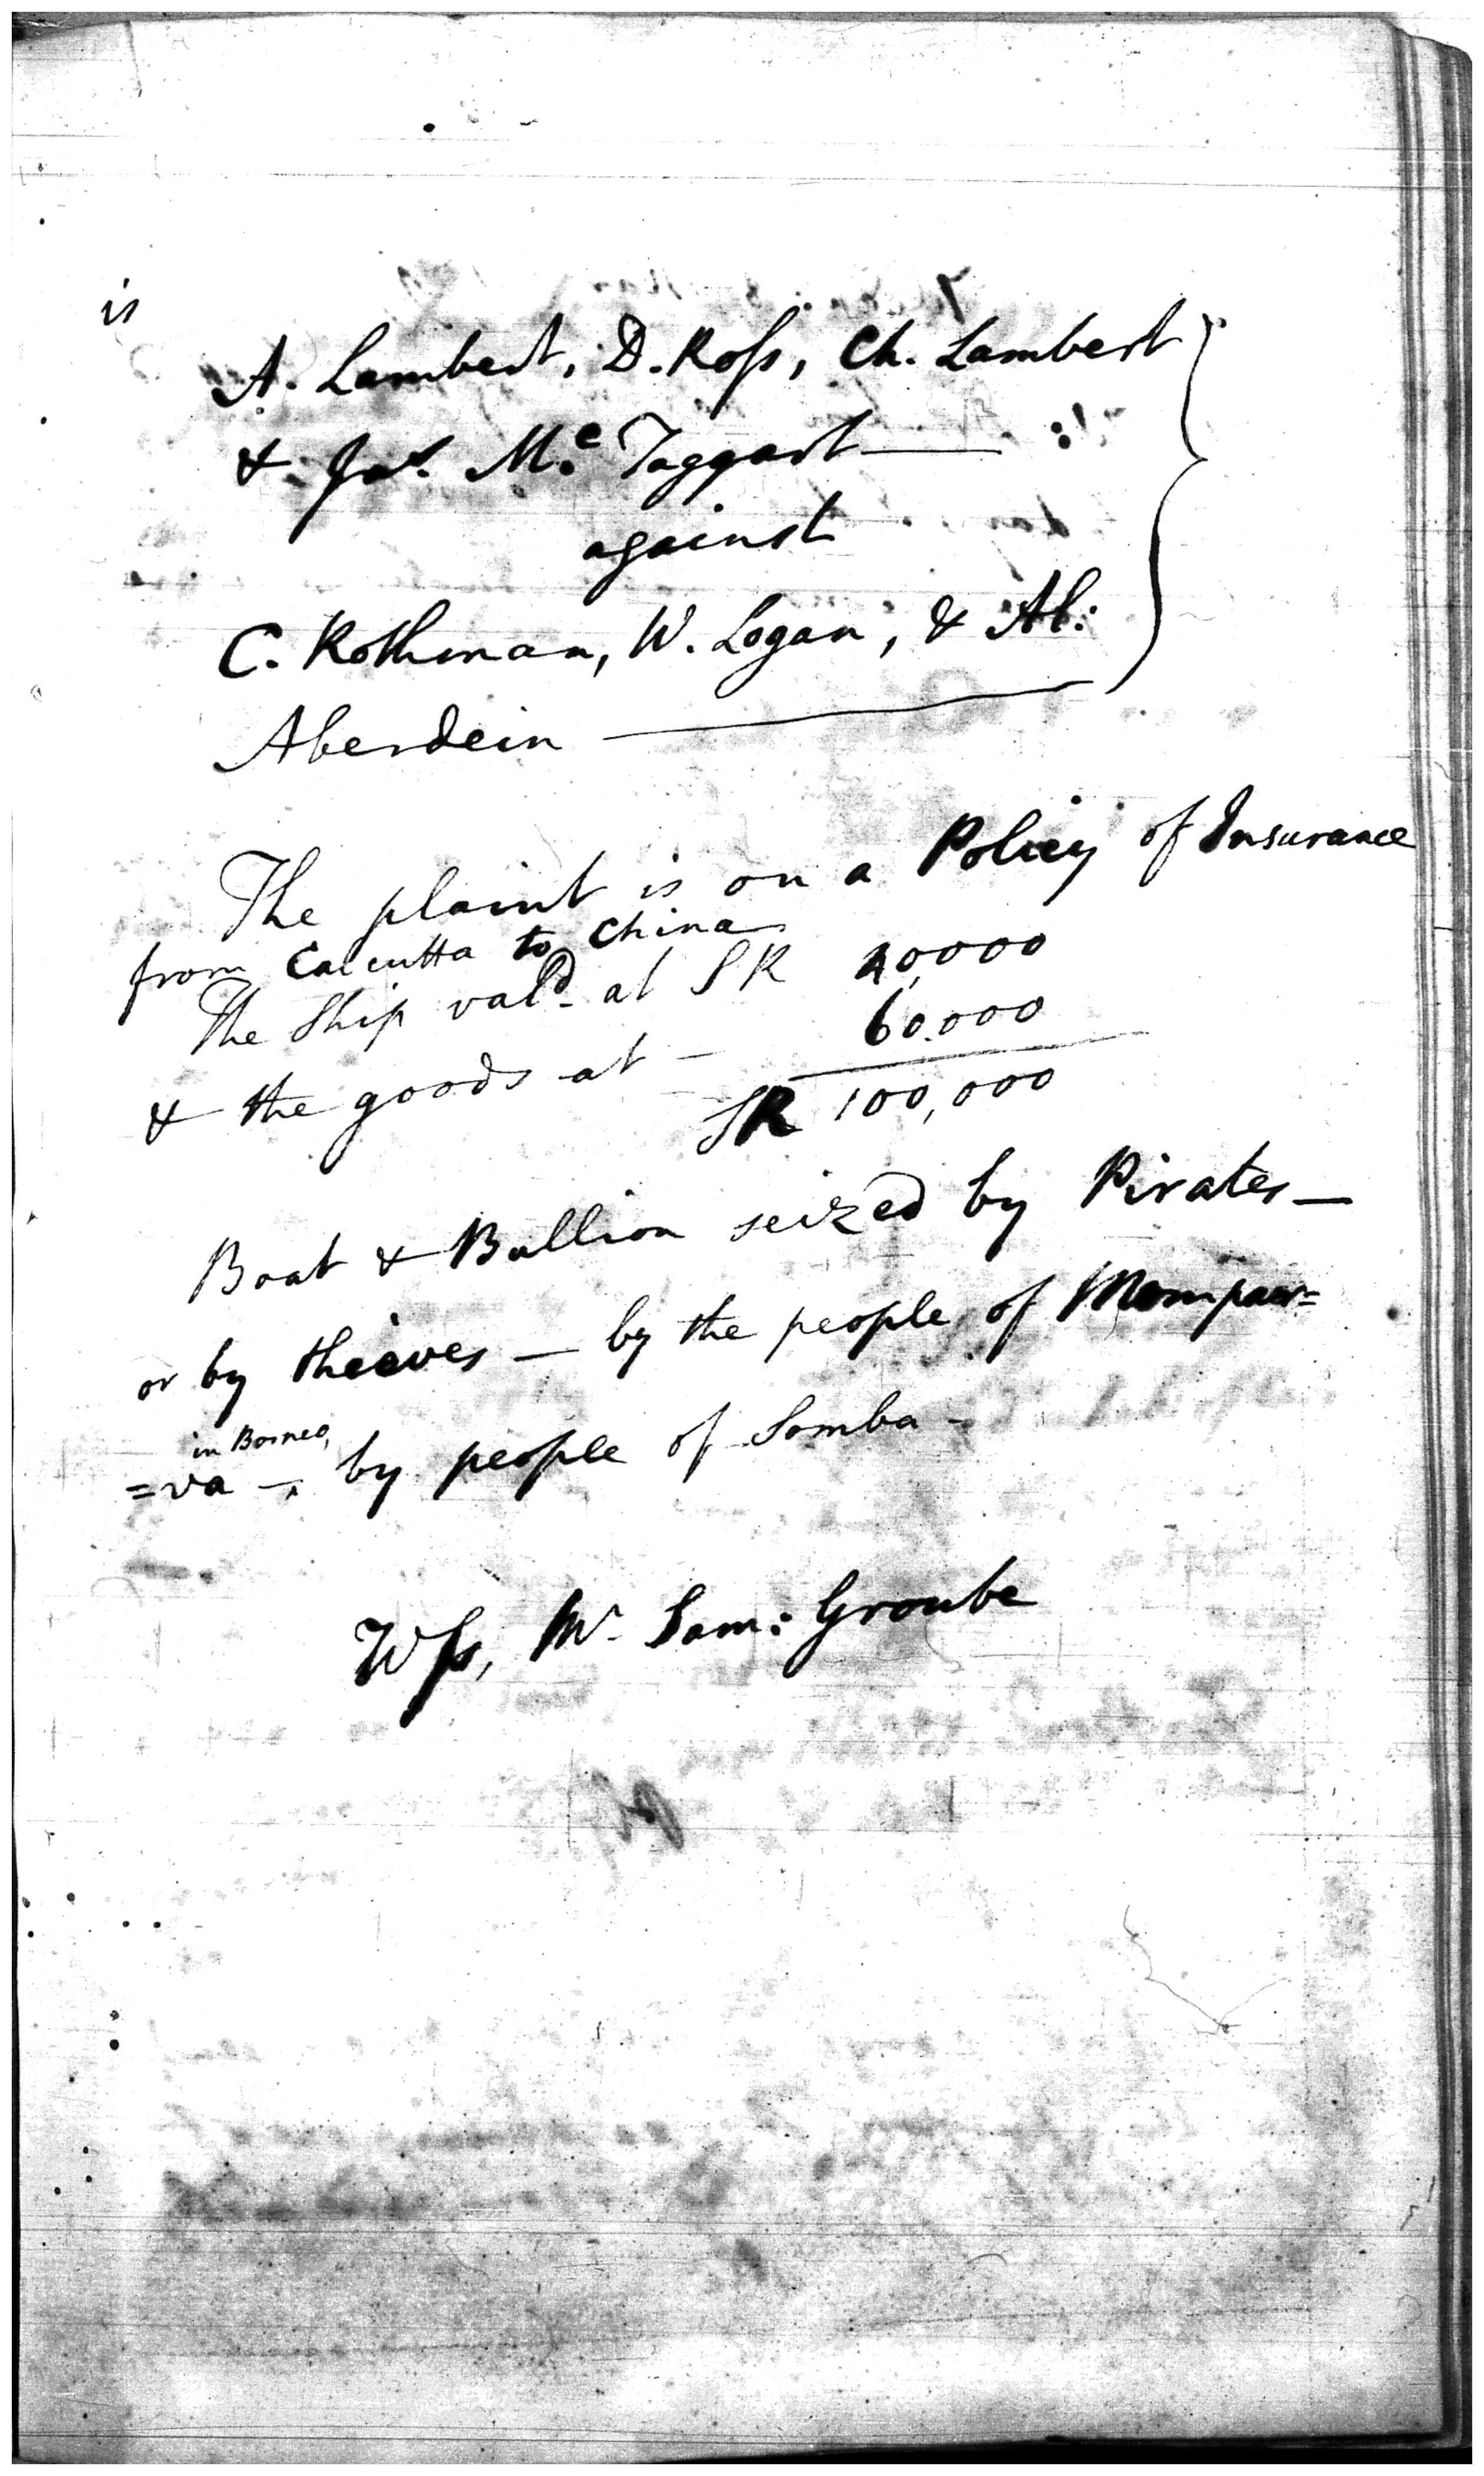 is
A. Lambert, D. Roſs, Ch. Lambert
& Jas. Mc. Taggart
against
C. Rothman, W. Logan, & Al:
Aberdein
The plaint is on a Policy of Insurance
from Calcutta to China
The Ship vald. at SR 40,000
& the goods at — 60.000
SR 100,000
Boat & Bullion seized by Pirates —
or by thieves — by the people of Mompaw=
in Borneo,
=va — by people of Somba —
Wſs, Mr. Sam: Groube